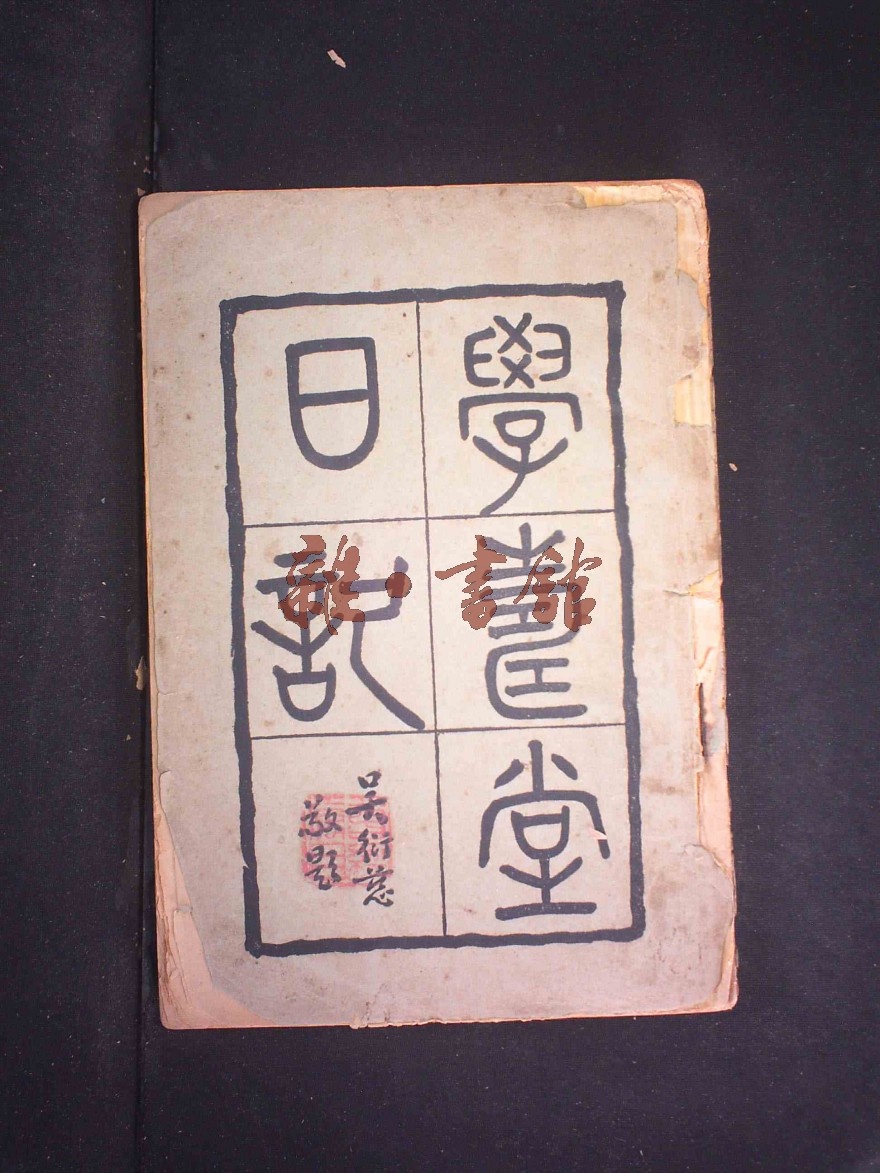 學壽堂
日記
吳衍慈
敬題
雜·書館